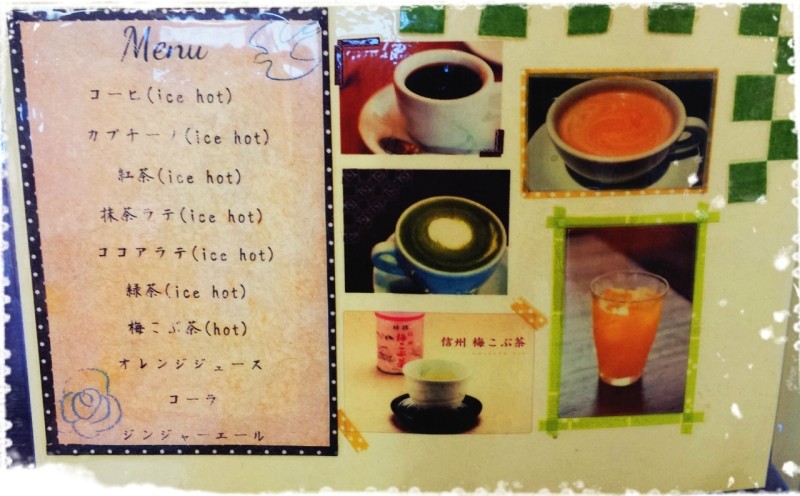 Menu
コーヒ(ice hot)
カプチーノ(ice hot)
紅茶(ice hot)
抹茶ラテ(ice hot)
ココアラテ(ice hot)
緑茶(ice hot)
梅こぶ茶(hot)
オレンジジュース
コーラ
ジンジャーエール
梅こぶ茶
信州 梅こぶ茶